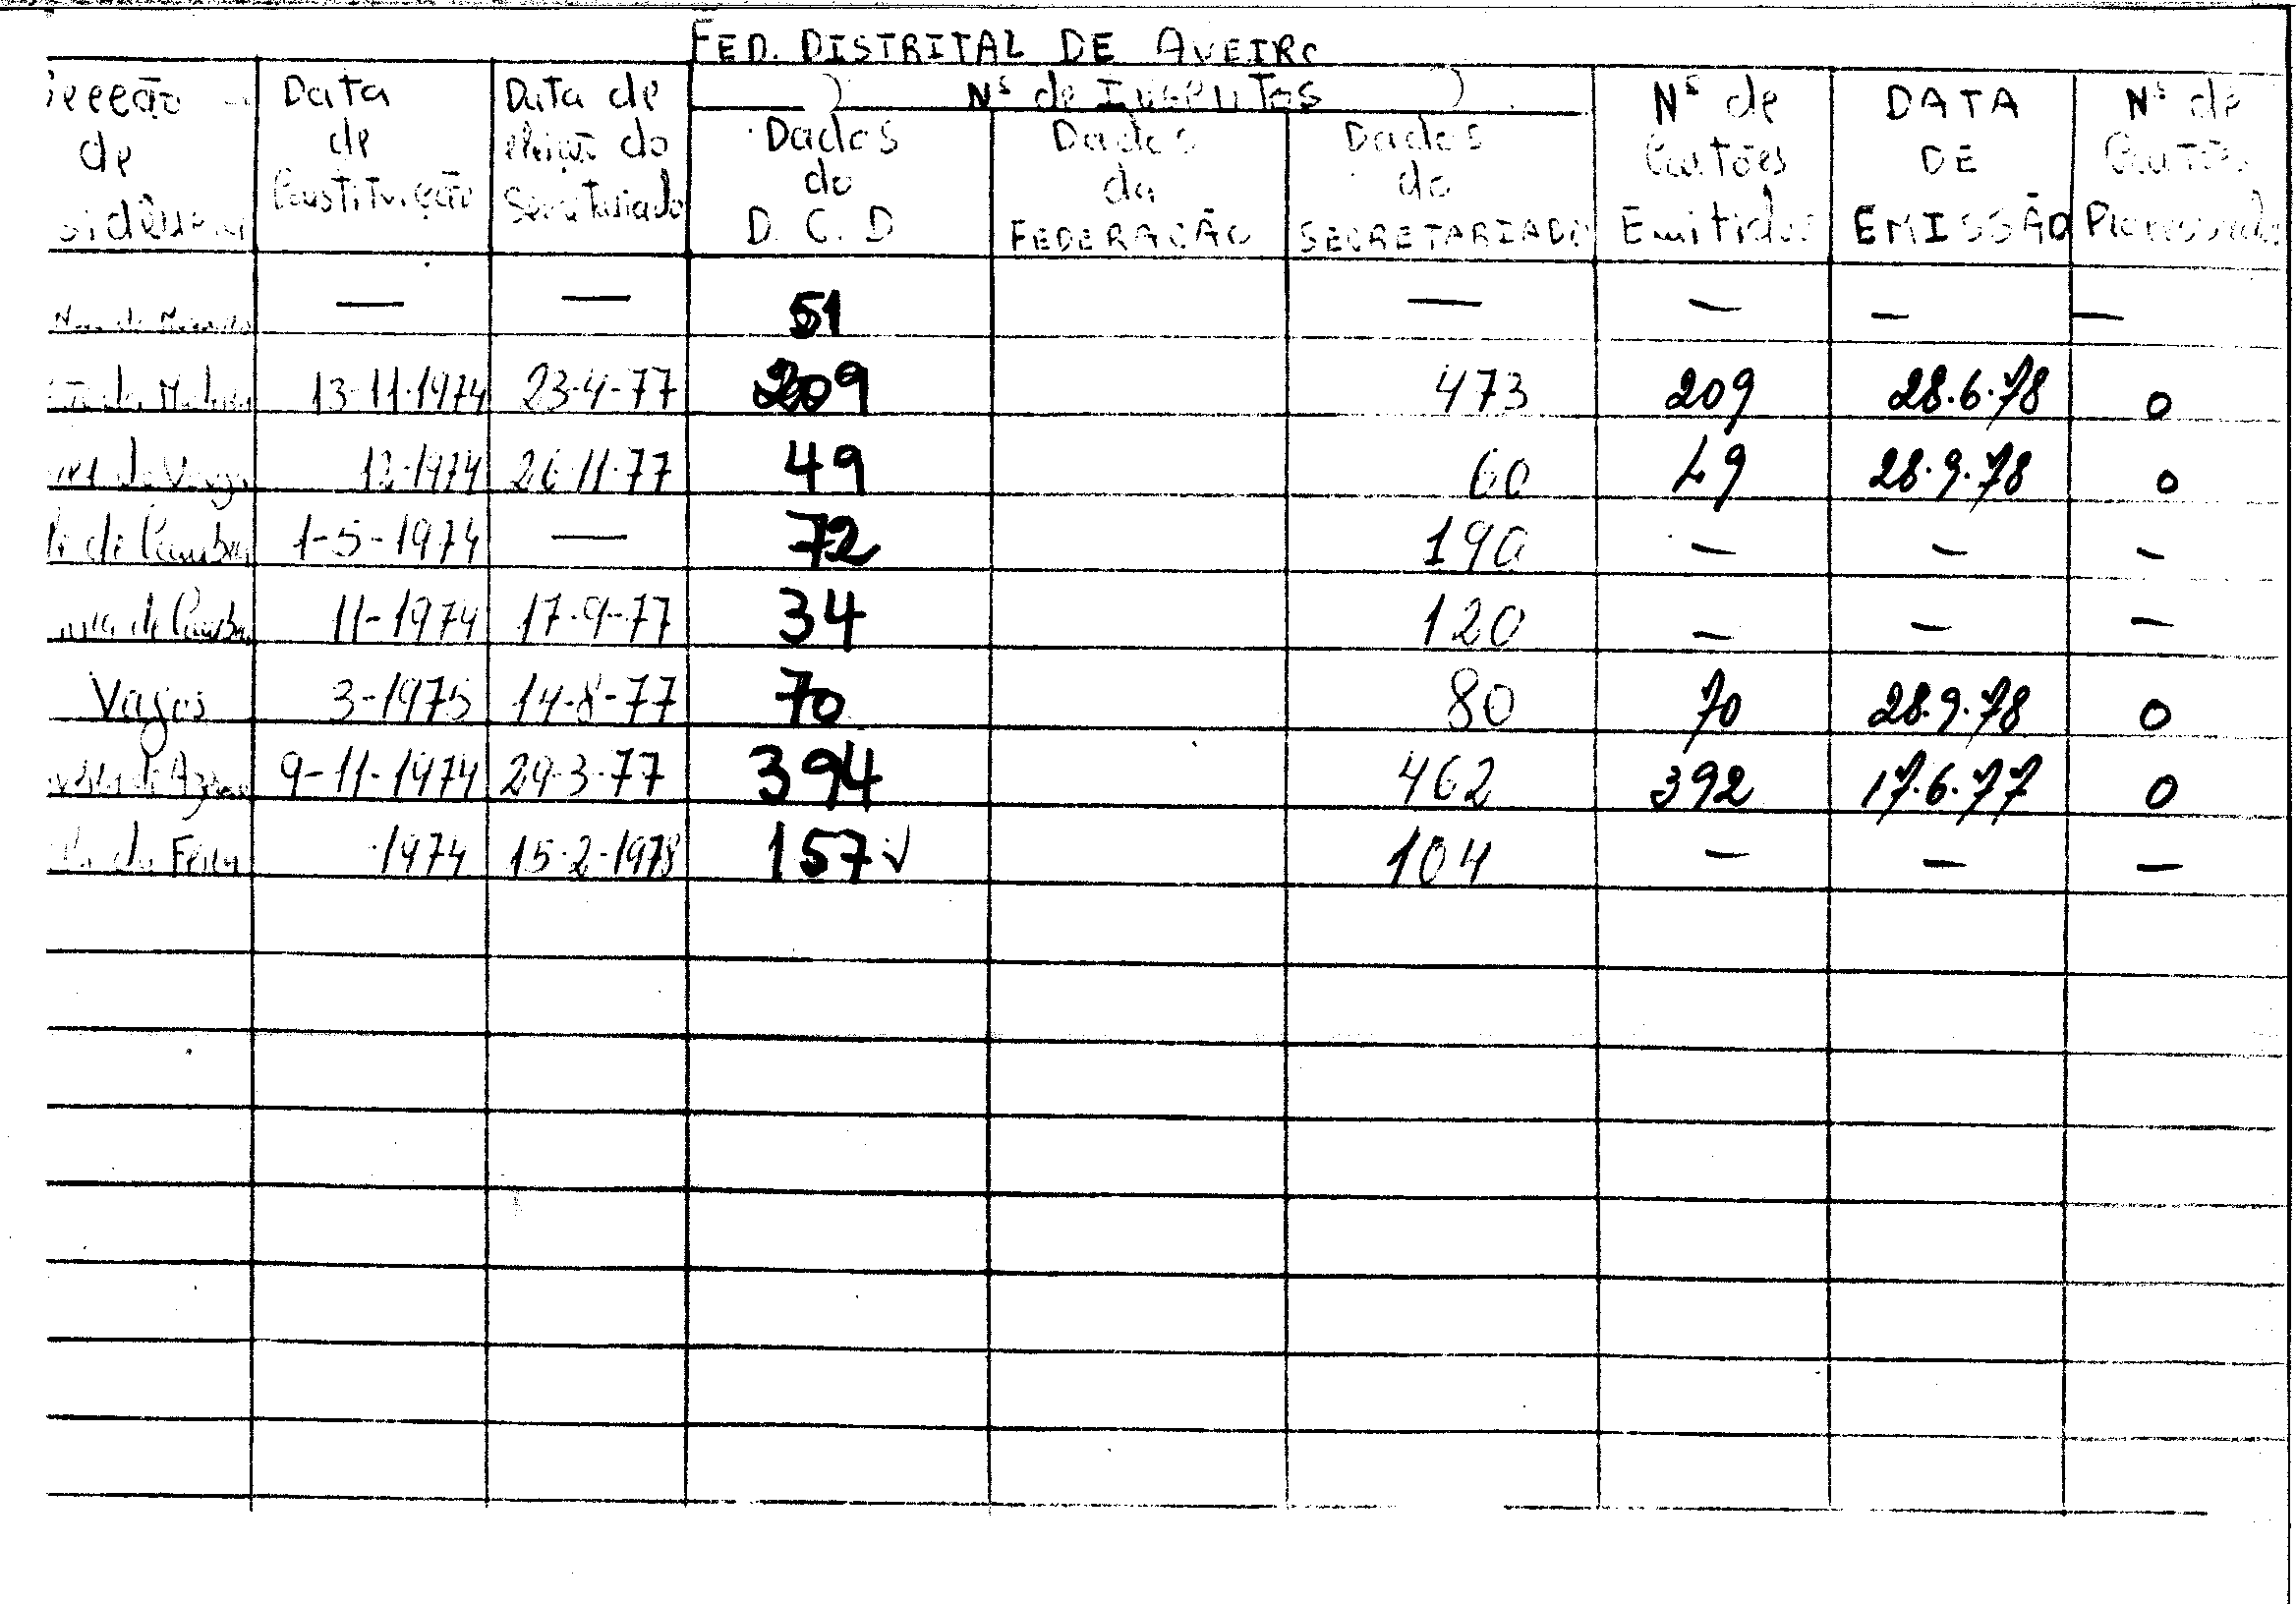 FED. DISTRITAL DE AVEIRO
Nˢ de Inscritos
Secção de
Data de Constituição
Data de eleição do Secretariado
Dados do D. C. D
Dados da FEDERAÇÃO
Dados do SECRETARIADO
Nˢ de Cartões Emitidos
DATA DE EMISSÃO
Nˢ de Cartões Processados
— — 51 — — — —
13-11-1974 23-4-77 209 473 209 28.6.78 0
12-1974 26-11-77 49 60 49 28.9.78 0
de Cambra 1-5-1974 — 72 190 — — —
de Cambra 11-1974 17-9-77 34 120 — — —
Vagos 3-1975 14-8-77 70 80 70 28.9.78 0
9-11-1974 29-3-77 394 462 392 17.6.77 0
da Feira 1974 15-2-1978 157 √ 104 — — —